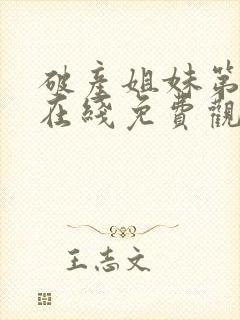 破產姐妹第
在綫免費觀
王志文